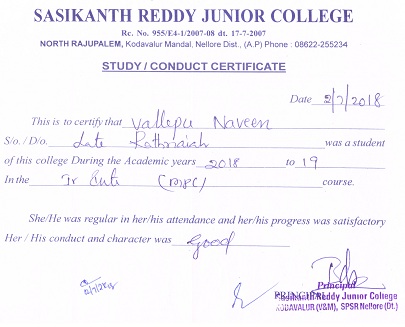 SASIKANTH REDDY JUNIOR COLLEGE
Rc. No. 955/E4-1/2007-08 dt. 17-7-2007
NORTH RAJUPALEM, Kodavalur Mandal, Nellore Dist., (A.P) Phone : 08622-255234
STUDY / CONDUCT CERTIFICATE
Date 2/7/2018
This is to certify that Vallepu Naveen
S/o. / D/o. Late Rathnaiah was a student
of this college During the Academic years 2018 to 19
In the Jr Inter (MPC) course.
She/He was regular in her/his attendance and her/his progress was satisfactory
Her / His conduct and character was Good
Principal
PRINCIPAL
Sasikanth Reddy Junior College
KODAVALUR (V&M), SPSR Nellore (Dt.)